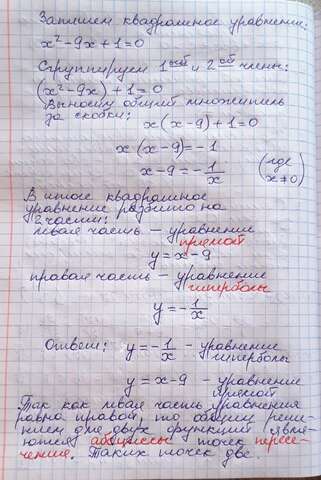 Запишем квадратное уравнение:
x² - 9x + 1 = 0
Сгруппируем 1ый и 2ой члены:
(x² - 9x) + 1 = 0
Выносим общий множитель
за скобки: x(x - 9) + 1 = 0
x(x - 9) = -1
x - 9 = -1/x (где x ≠ 0)
В итоге квадратное
уравнение разбито на
2 части:
левая часть - уравнение
прямой
y = x - 9
правая часть - уравнение
гиперболы
y = -1/x
Ответ: y = -1/x - уравнение
гиперболы
y = x - 9 - уравнение
прямой
Так как левая часть уравнения
равна правой, то общим реше-
нием для двух функций явля-
ются абсциссы точек пересе-
чения. Таких точек две.